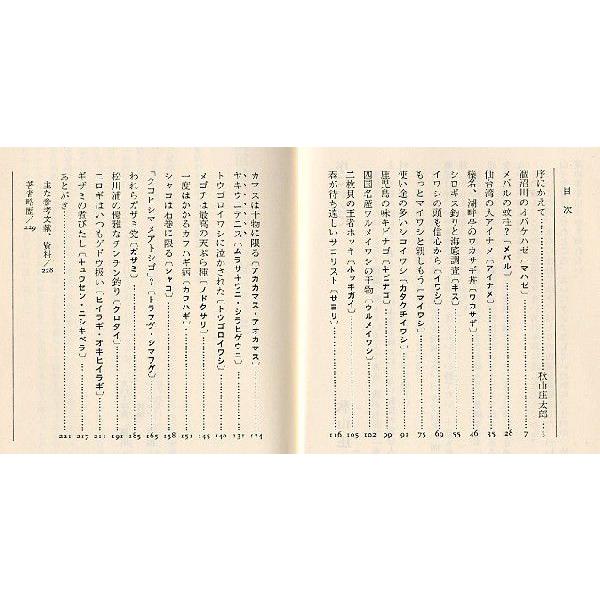 目次
序にかえて 秋山庄太郎
涸沼川のオバケハゼ〔マハゼ〕 7
メバルの奴種?〔メバル〕 28
仙台湾の大アイナメ〔アイナメ〕 35
榛名、湖畔亭のワカサギ丼〔ワカサギ〕 46
シロギス釣りと海底調査〔キス〕 55
イワシの頭も信心から〔イワシ〕 69
もっとマイワシと親しもう〔マイワシ〕 75
使い途の多いシコイワシ〔カタクチイワシ〕 91
鹿児島の味キビナゴ〔キビナゴ〕 99
四国名産ウルメイワシの干物〔ウルメイワシ〕 102
二枚貝の王者ホッキ〔ホッキガイ〕 105
春が待ち遠しいサヨリスト〔サヨリ〕 116
カマスは干物に限る〔アカカマス・アオカマス〕 124
ヤキウニデニス〔ムラサキウニ・シラヒゲウニ〕 131
トウゴロイワシに泣かされた〔トウゴロイワシ〕 140
メゴチは最高の天ぷら種〔ノドクサリ〕 145
一度はかかるカワハギ病〔カワハギ〕 151
シャコは石巻に限る〔シャコ〕 158
「タコトシマメアトシゴ」?〔トラフグ・シマフグ〕 165
われらガザミ党〔ガザミ〕 185
松川浦の優雅なチンチン釣り〔クロダイ〕 191
ニロギはいつもゲドウ扱い〔ヒイラギ・オキヒイラギ〕 211
ギザミの煮びたし〔キュウセン・ニシキベラ〕 217
あとがき 221
主な参考文献、資料/228
著者略歴/229